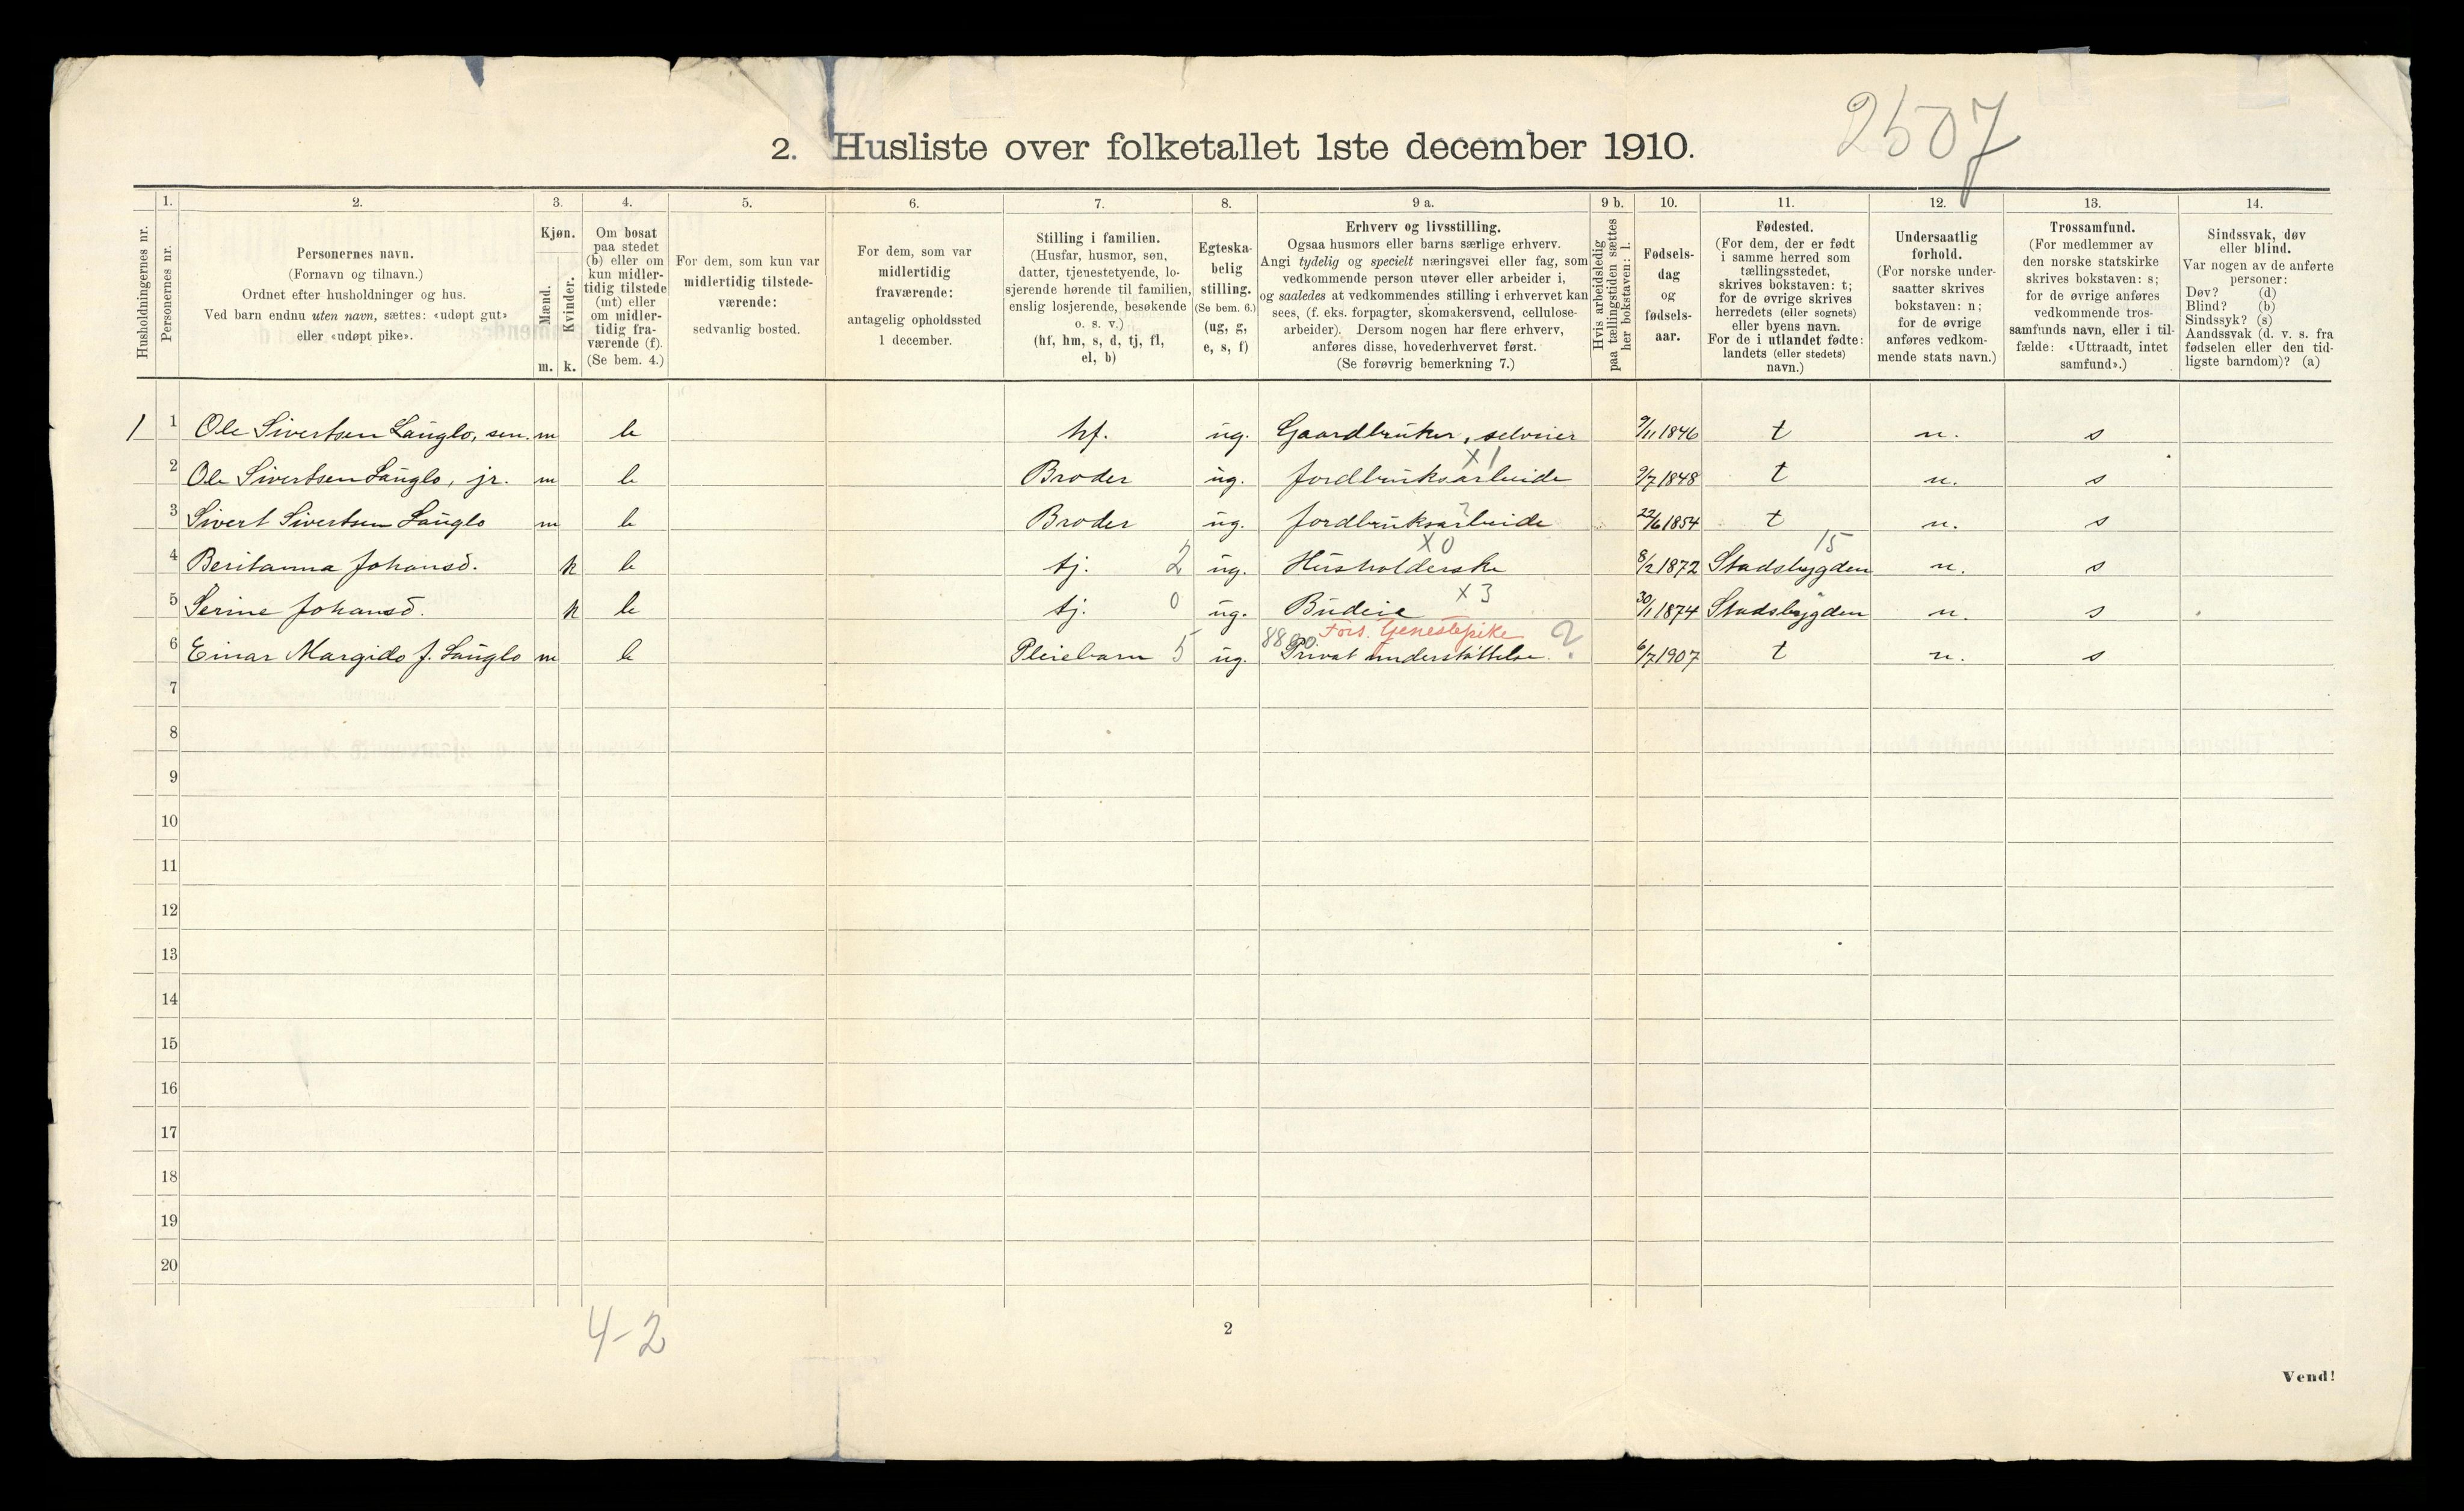 2507
2. Husliste over folketallet 1ste december 1910.
Husholdningernes nr.
1.
Personernes nr.
2.
Personernes navn.
(Fornavn og tilnavn.)
Ordnet efter husholdninger og hus.
Ved barn endnu uten navn, sættes: «udøpt gut»
eller «udøpt pike».
3.
Kjøn.
Mænd.
Kvinder.
m. k.
4.
Om bosat
paa stedet
(b) eller om
kun midler-
tidig tilstede
(mt) eller
om midler-
tidig fra-
værende (f).
(Se bem. 4.)
5.
For dem, som kun var
midlertidig tilstede-
værende:
sedvanlig bosted.
6.
For dem, som var
midlertidig
fraværende:
antagelig opholdssted
1 december.
7.
Stilling i familien.
(Husfar, husmor, søn,
datter, tjenestetyende, lo-
sjerende hørende til familien,
enslig losjerende, besøkende
o. s. v.)
(hf, hm, s, d, tj, fl,
el, b)
8.
Egteska-
belig
stilling.
(Se bem. 6.)
(ug, g,
e, s, f)
9 a.
Erhverv og livsstilling.
Ogsaa husmors eller barns særlige erhverv.
Angi tydelig og specielt næringsvei eller fag, som
vedkommende person utøver eller arbeider i,
og saaledes at vedkommendes stilling i erhvervet kan
sees, (f. eks. forpagter, skomakersvend, cellulose-
arbeider). Dersom nogen har flere erhverv,
anføres disse, hovederhvervet først.
(Se forøvrig bemerkning 7.)
9 b.
Hvis arbeidsledig
paa tællingstiden sættes
her bokstaven: l.
10.
Fødsels-
dag
og
fødsels-
aar.
11.
Fødested.
(For dem, der er født
i samme herred som
tællingsstedet,
skrives bokstaven: t;
for de øvrige skrives
herredets (eller sognets)
eller byens navn.
For de i utlandet fødte:
landets (eller stedets)
navn.)
12.
Undersaatlig
forhold.
(For norske under-
saatter skrives
bokstaven: n;
for de øvrige
anføres vedkom-
mende stats navn.)
13.
Trossamfund.
(For medlemmer av
den norske statskirke
skrives bokstaven: s;
for de øvrige anføres
vedkommende tros-
samfunds navn, eller i til-
fælde: «Uttraadt, intet
samfund».)
14.
Sindssvak, døv
eller blind.
Var nogen av de anførte
personer:
Døv? (d)
Blind? (b)
Sindssyk? (s)
Aandssvak (d. v. s. fra
fødselen eller den tid-
ligste barndom)? (a)
1 1 Ole Sivertsen Langlo, sen. m b hf. ug. Gaardbruker, selveier 9/11 1846 t n. s
X1
2 Ole Sivertsen Langlo, jr. m b Broder ug. Jordbruksarbeide 9/7 1848 t n. s
?
3 Sivert Sivertsen Langlo m b Broder ug. Jordbruksarbeide 22/6 1854 t n. s
X0 15
4 Beritanna Johansd. k b tj. 2 ug. Husholderske 8/2 1872 Stadsbygden n. s
X3
5 Serine Johansd. k b tj. 0 ug. Budeie 30/1 1874 Stadsbygden n. s
8800 Fors. tjenestepike ?
6 Einar Margido J. Langlo m b Pleiebarn 5 ug. Privat understøttelse. 6/7 1907 t n. s
7
8
9
10
11
12
13
14
15
16
17
18
19
20
4-2
2
Vend!